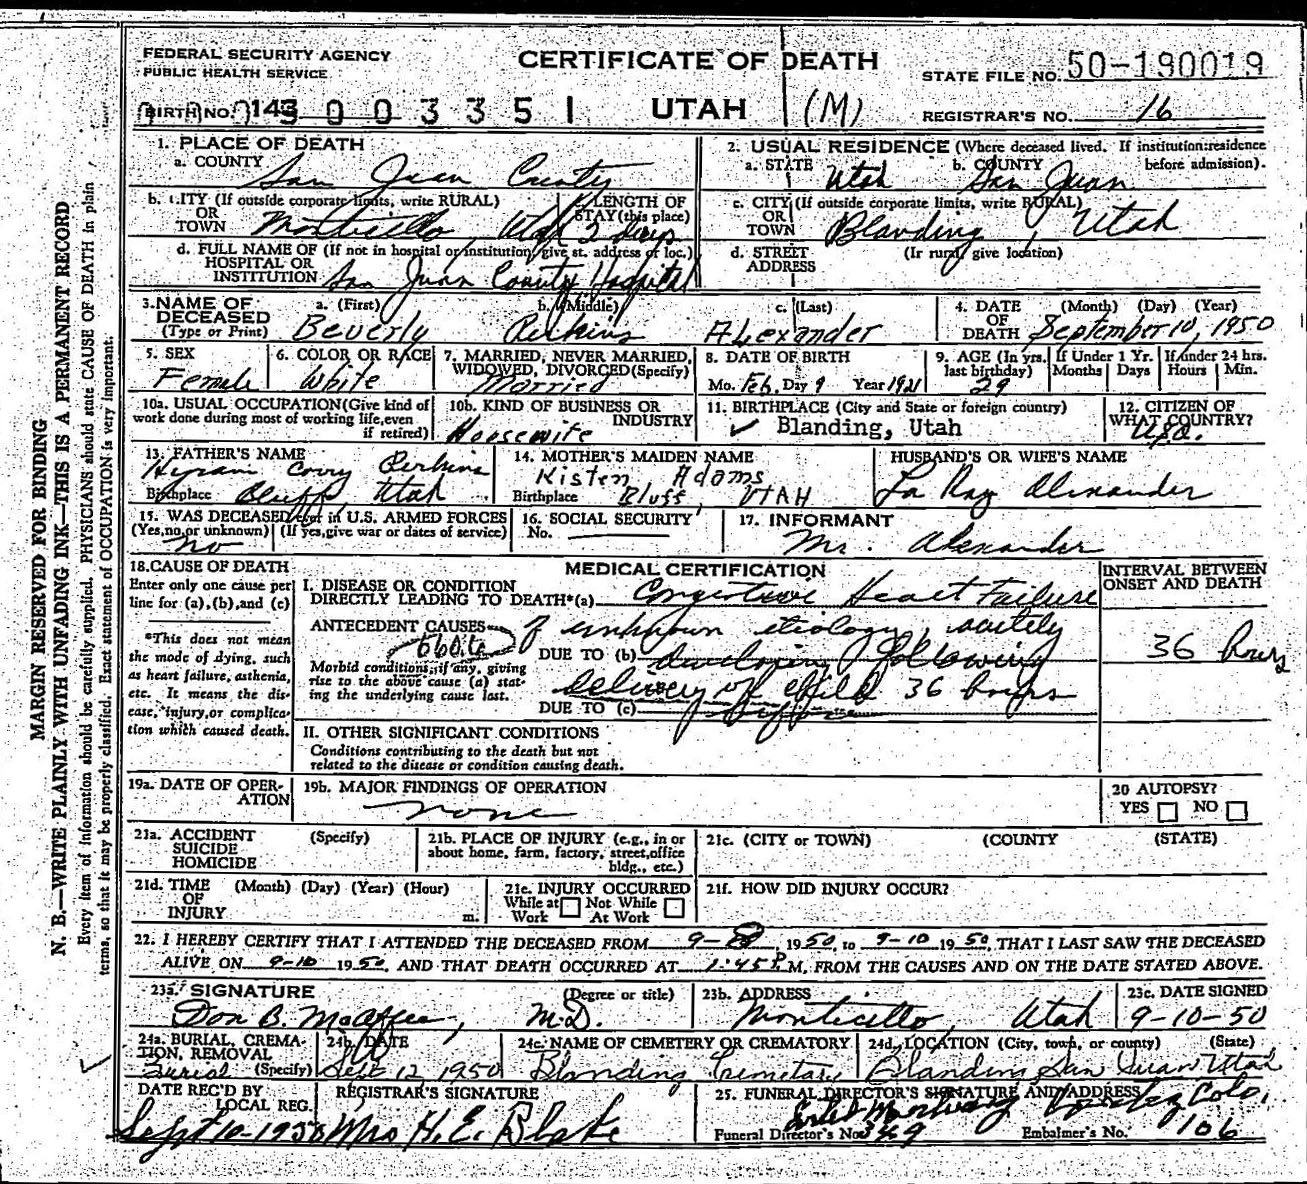 FEDERAL SECURITY AGENCY
PUBLIC HEALTH SERVICE
CERTIFICATE OF DEATH
STATE FILE NO. 50-190019
BIRTH NO. 143 003351 UTAH (M)
REGISTRAR'S NO. 16
MARGIN RESERVED FOR BINDING
N. B.—WRITE PLAINLY WITH UNFADING INK—THIS IS A PERMANENT RECORD
Every item of information should be carefully supplied. PHYSICIANS should state CAUSE OF DEATH in plain
terms, so that it may be properly classified. Exact statement of OCCUPATION is very important.
1. PLACE OF DEATH
a. COUNTY San Juan County
2. USUAL RESIDENCE (Where deceased lived. If institution:residence
before admission).
a. STATE Utah b. COUNTY San Juan
b. CITY (If outside corporate limits, write RURAL)
OR
TOWN Monticello, Utah
LENGTH OF
STAY (this place) 2 days
c. CITY (If outside corporate limits, write RURAL)
OR
TOWN Blanding, Utah
d. FULL NAME OF (If not in hospital or institution, give st. address or loc.)
HOSPITAL OR
INSTITUTION San Juan County Hospital
d. STREET (If rural, give location)
ADDRESS
3. NAME OF
DECEASED
(Type or Print)
a. (First) Beverly
b. (Middle) Perkins
c. (Last) Alexander
4. DATE (Month) (Day) (Year)
OF
DEATH September 10, 1950
5. SEX
Female
6. COLOR OR RACE
White
7. MARRIED, NEVER MARRIED,
WIDOWED, DIVORCED (Specify)
Married
8. DATE OF BIRTH
Mo. Feb. Day 9 Year 1921
9. AGE (In yrs. last birthday) 29
If Under 1 Yr.
Months Days
If under 24 hrs.
Hours Min.
10a. USUAL OCCUPATION (Give kind of
work done during most of working life, even
if retired)
10b. KIND OF BUSINESS OR
INDUSTRY
Housewife
11. BIRTHPLACE (City and State or foreign country)
✓ Blanding, Utah
12. CITIZEN OF
WHAT COUNTRY?
U.S.A.
13. FATHER'S NAME
Hyram Corry Perkins
Birthplace Bluff, Utah
14. MOTHER'S MAIDEN NAME
Kisten Adams
Birthplace Bluff, UTAH
HUSBAND'S OR WIFE'S NAME
La Ray Alexander
15. WAS DECEASED ever in U.S. ARMED FORCES
(Yes, no, or unknown) (If yes, give war or dates of service)
no
16. SOCIAL SECURITY
No.
17. INFORMANT
Mr. Alexander
18. CAUSE OF DEATH
Enter only one cause per
line for (a), (b), and (c)
*This does not mean
the mode of dying, such
as heart failure, asthenia,
etc. It means the dis-
ease, injury, or complica-
tion which caused death.
MEDICAL CERTIFICATION
INTERVAL BETWEEN
ONSET AND DEATH
I. DISEASE OR CONDITION
DIRECTLY LEADING TO DEATH*(a) Congestive Heart Failure
ANTECEDENT CAUSES of unknown etiology, acutely
DUE TO (b) developing following
36 hours
Morbid conditions, if any, giving
rise to the above cause (a) stat-
ing the underlying cause last.
delivery of child 36 hours
DUE TO (c) before
II. OTHER SIGNIFICANT CONDITIONS
Conditions contributing to the death but not
related to the disease or condition causing death.
19a. DATE OF OPER-
ATION
19b. MAJOR FINDINGS OF OPERATION
none
20 AUTOPSY?
YES NO
21a. ACCIDENT (Specify)
SUICIDE
HOMICIDE
21b. PLACE OF INJURY (e.g., in or
about home, farm, factory, street, office
bldg., etc.)
21c. (CITY or TOWN) (COUNTY) (STATE)
21d. TIME (Month) (Day) (Year) (Hour)
OF
INJURY m.
21e. INJURY OCCURRED
While at Not While
Work At Work
21f. HOW DID INJURY OCCUR?
22. I HEREBY CERTIFY THAT I ATTENDED THE DECEASED FROM 9-8, 1950, to 9-10 1950, THAT I LAST SAW THE DECEASED
ALIVE ON 9-10 1950, AND THAT DEATH OCCURRED AT 1:45 P. M. FROM THE CAUSES AND ON THE DATE STATED ABOVE.
23a. SIGNATURE (Degree or title)
Don B. McAffee, M.D.
23b. ADDRESS
Monticello, Utah
23c. DATE SIGNED
9-10-50
24a. BURIAL, CREMA-
TION, REMOVAL
(Specify) Burial
24b. DATE
Sept 12 1950
24c. NAME OF CEMETERY OR CREMATORY
Blanding Cemetary
24d. LOCATION (City, town, or county) (State)
Blanding San Juan Utah
DATE REC'D BY
LOCAL REG.
REGISTRAR'S SIGNATURE
Mrs H. E. Blake
25. FUNERAL DIRECTOR'S SIGNATURE AND ADDRESS
Mortuary Colo.
Funeral Director's No. 369 Embalmer's No. 1106